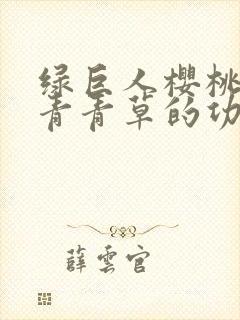 绿巨人樱桃
青青草的功
薛云官